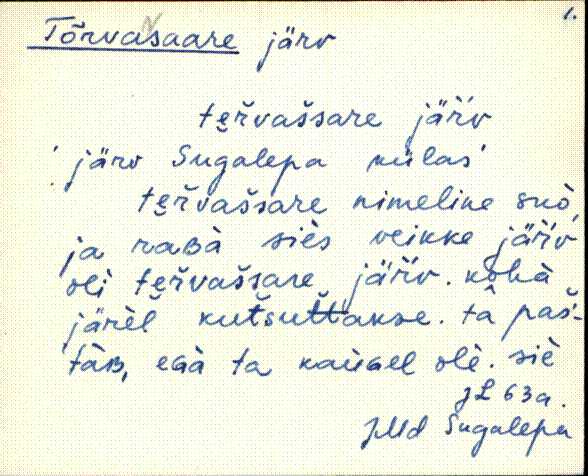 1.
Tõrvasaare järv
te̮řvaššare jäŕv
' järv Sugalepa külas'
te̮řvaššare nimeline suò,
ja raʙà siès veikke jäŕv
olì te̮řvaššare jäŕv. kòhà
järèl kutšuttakse. tâ paš-
tàʙ, eɢà ta kaùɢel olè. siè
JL 63a.
JMd Sugalepa